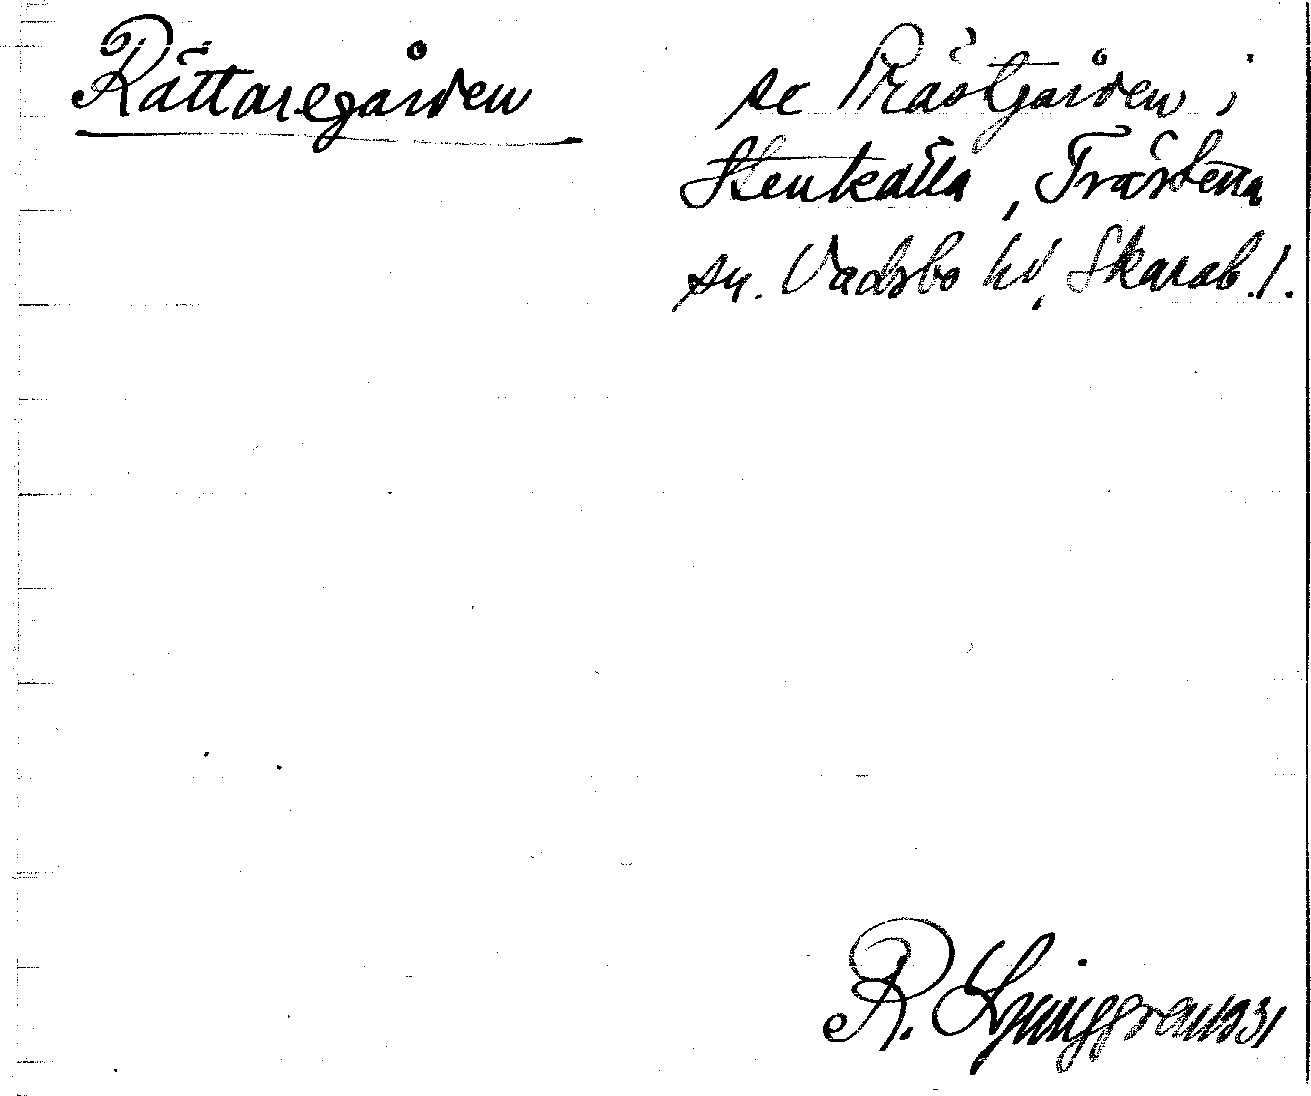 Rättaregården
se Prästgården i
Stenkälla, Trästena
sn. Vadsbo hd, Skarab. l.
R. Ljunggren 1931